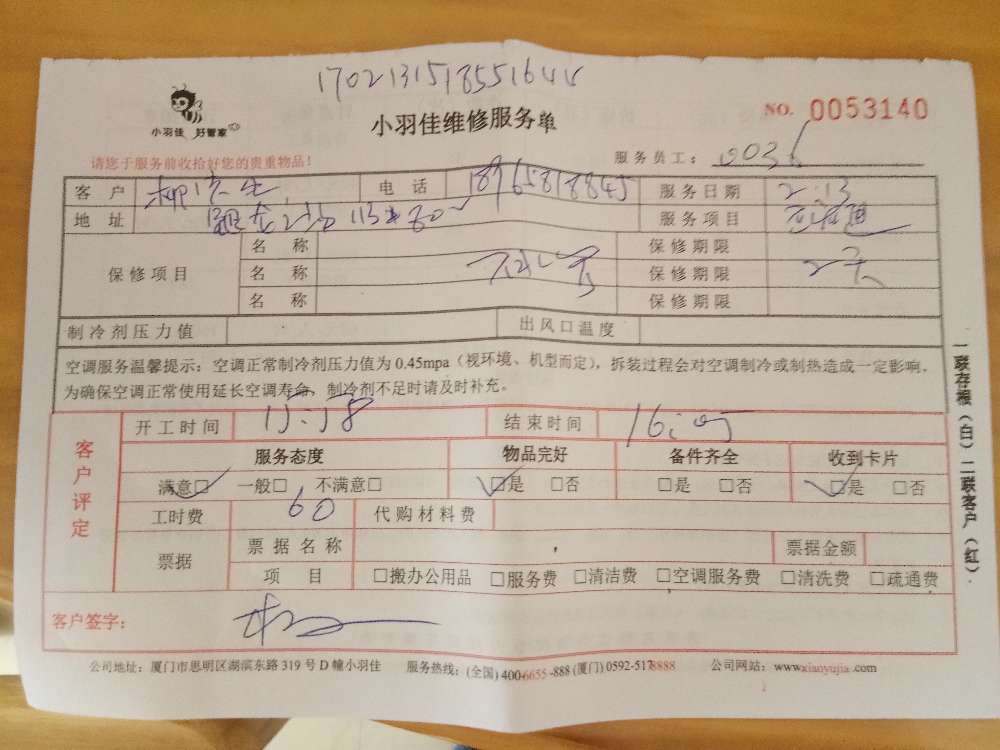 17021315185516
NO. 0053140
小羽佳 好管家
小羽佳维修服务单
请您于服务前收拾好您的贵重物品！
服务员工：0036
客户 柳先生 电话 18965818845 服务日期 2.13
地址 服务项目
保修项目 名称 保修期限
名称 保修期限 2天
名称 保修期限
制冷剂压力值 出风口温度
空调服务温馨提示：空调正常制冷剂压力值为 0.45mpa（视环境、机型而定），拆装过程会对空调制冷或制热造成一定影响，
为确保空调正常使用延长空调寿命，制冷剂不足时请及时补充。
客户评定
开工时间 15:58 结束时间 16:05
服务态度 物品完好 备件齐全 收到卡片
满意□ 一般□ 不满意□ □是 □否 □是 □否 □是 □否
工时费 60 代购材料费
票据 票据名称 票据金额
项目 □搬办公用品 □服务费 □清洁费 □空调服务费 □清洗费 □疏通费
客户签字：
公司地址：厦门市思明区湖滨东路 319 号 D 幢小羽佳 服务热线：(全国) 400-6655-888 (厦门) 0592-5178888 公司网站：www.xiaoyujia.com
一联存根（白）二联客户（红）.